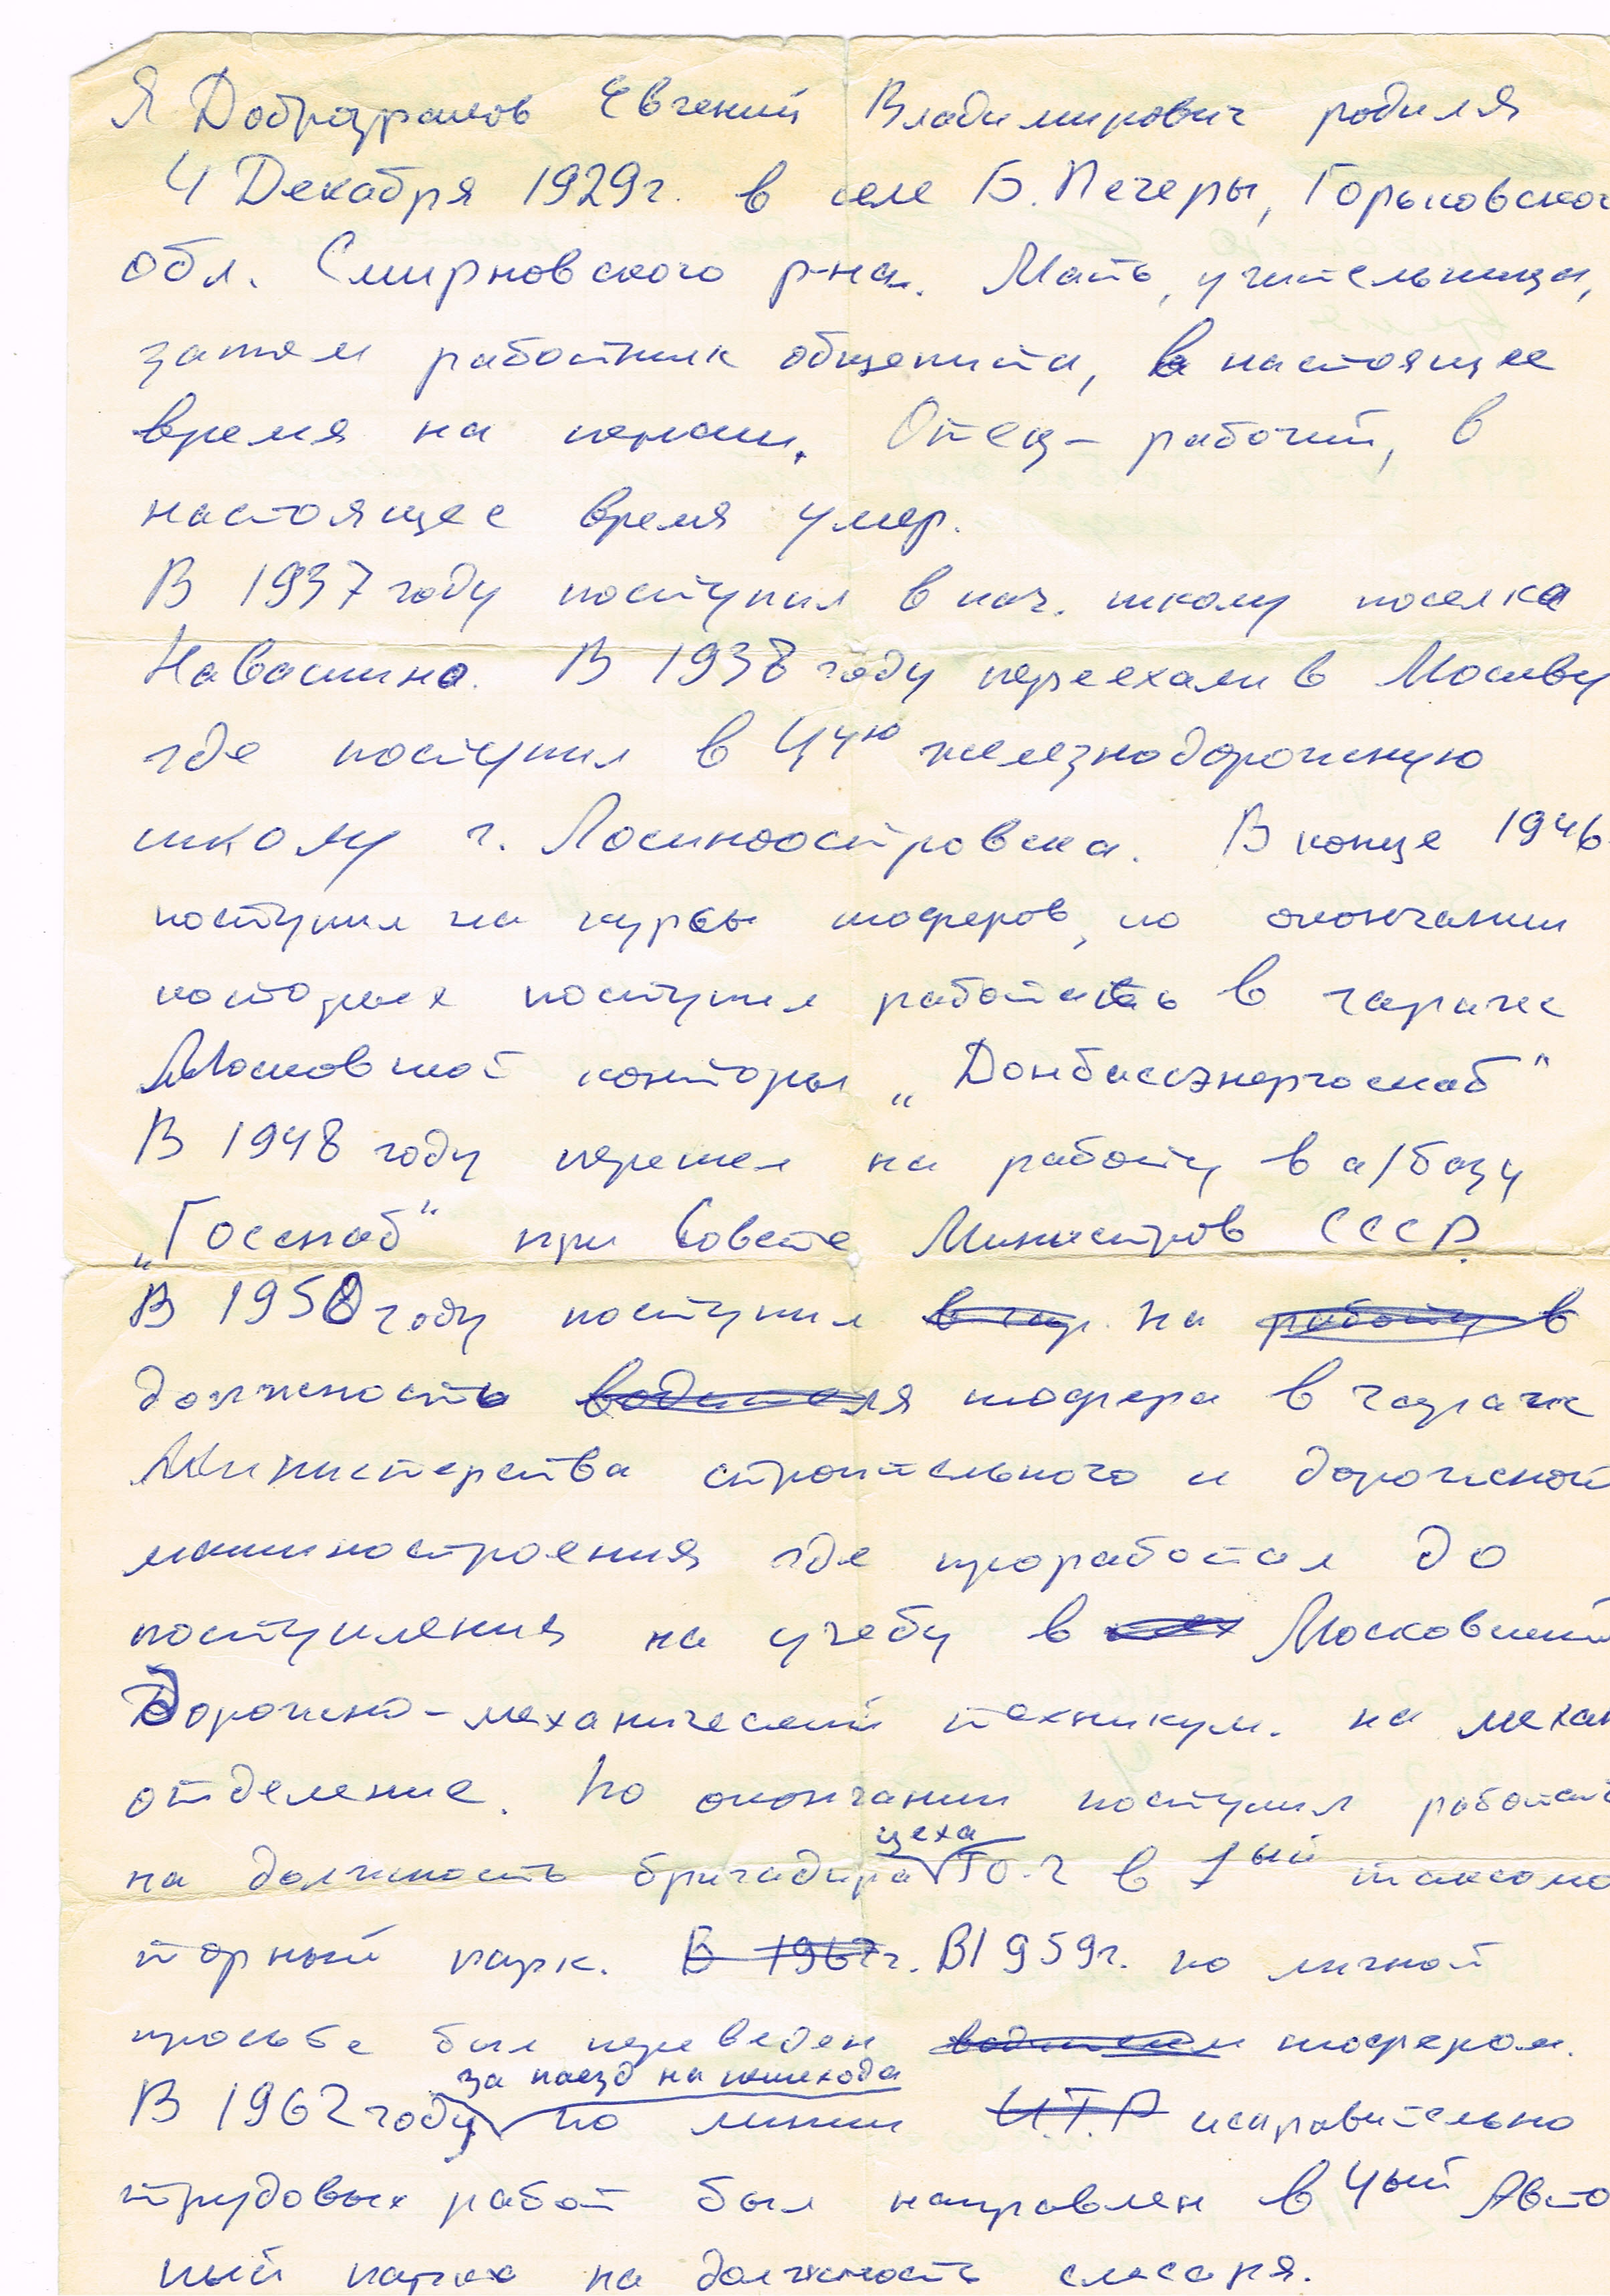 Я Добронравов Евгений Владимирович родился
4 Декабря 1929г. в селе Б. Печеры, Горьковской
обл. Смирновского р-на. Мать, учительница,
затем работник общепита, в настоящее
время на пенсии. Отец – рабочий, в
настоящее время умер.
В 1937 году поступил в нач. школу поселка
Навашино. В 1938 году переехали в Москву
где поступил в 44ю железнодорожную
школу г. Лосиноостровска. В конце 1946
поступил на курсы шоферов, по окончании
которых поступил работать в гараж
Московской конторы „Донбассэнергоснаб“
В 1948 году перешел на работу в а/базу
„Госснаб“ при Совете Министров СССР.
В 1950 году поступил в гар. на работу в
должность водителя шофера в гараж
Министерства строительного и дорожной
машиностроения где проработал до
поступления на учебу в Московский
Дорожно-механический техникум. на механ
отделение. По окончании поступил работать
цеха
на должность бригадира ТО-2 в 1ый таксомо
торный парк. В 1967г. В 1959г. по личной
просьбе был переведен водителем шофером.
за наезд на пешехода
В 1962 году по линии И.Т.Р исправительно
трудовых работ был направлен в 4ый Авто
ный парк на должность слесаря.